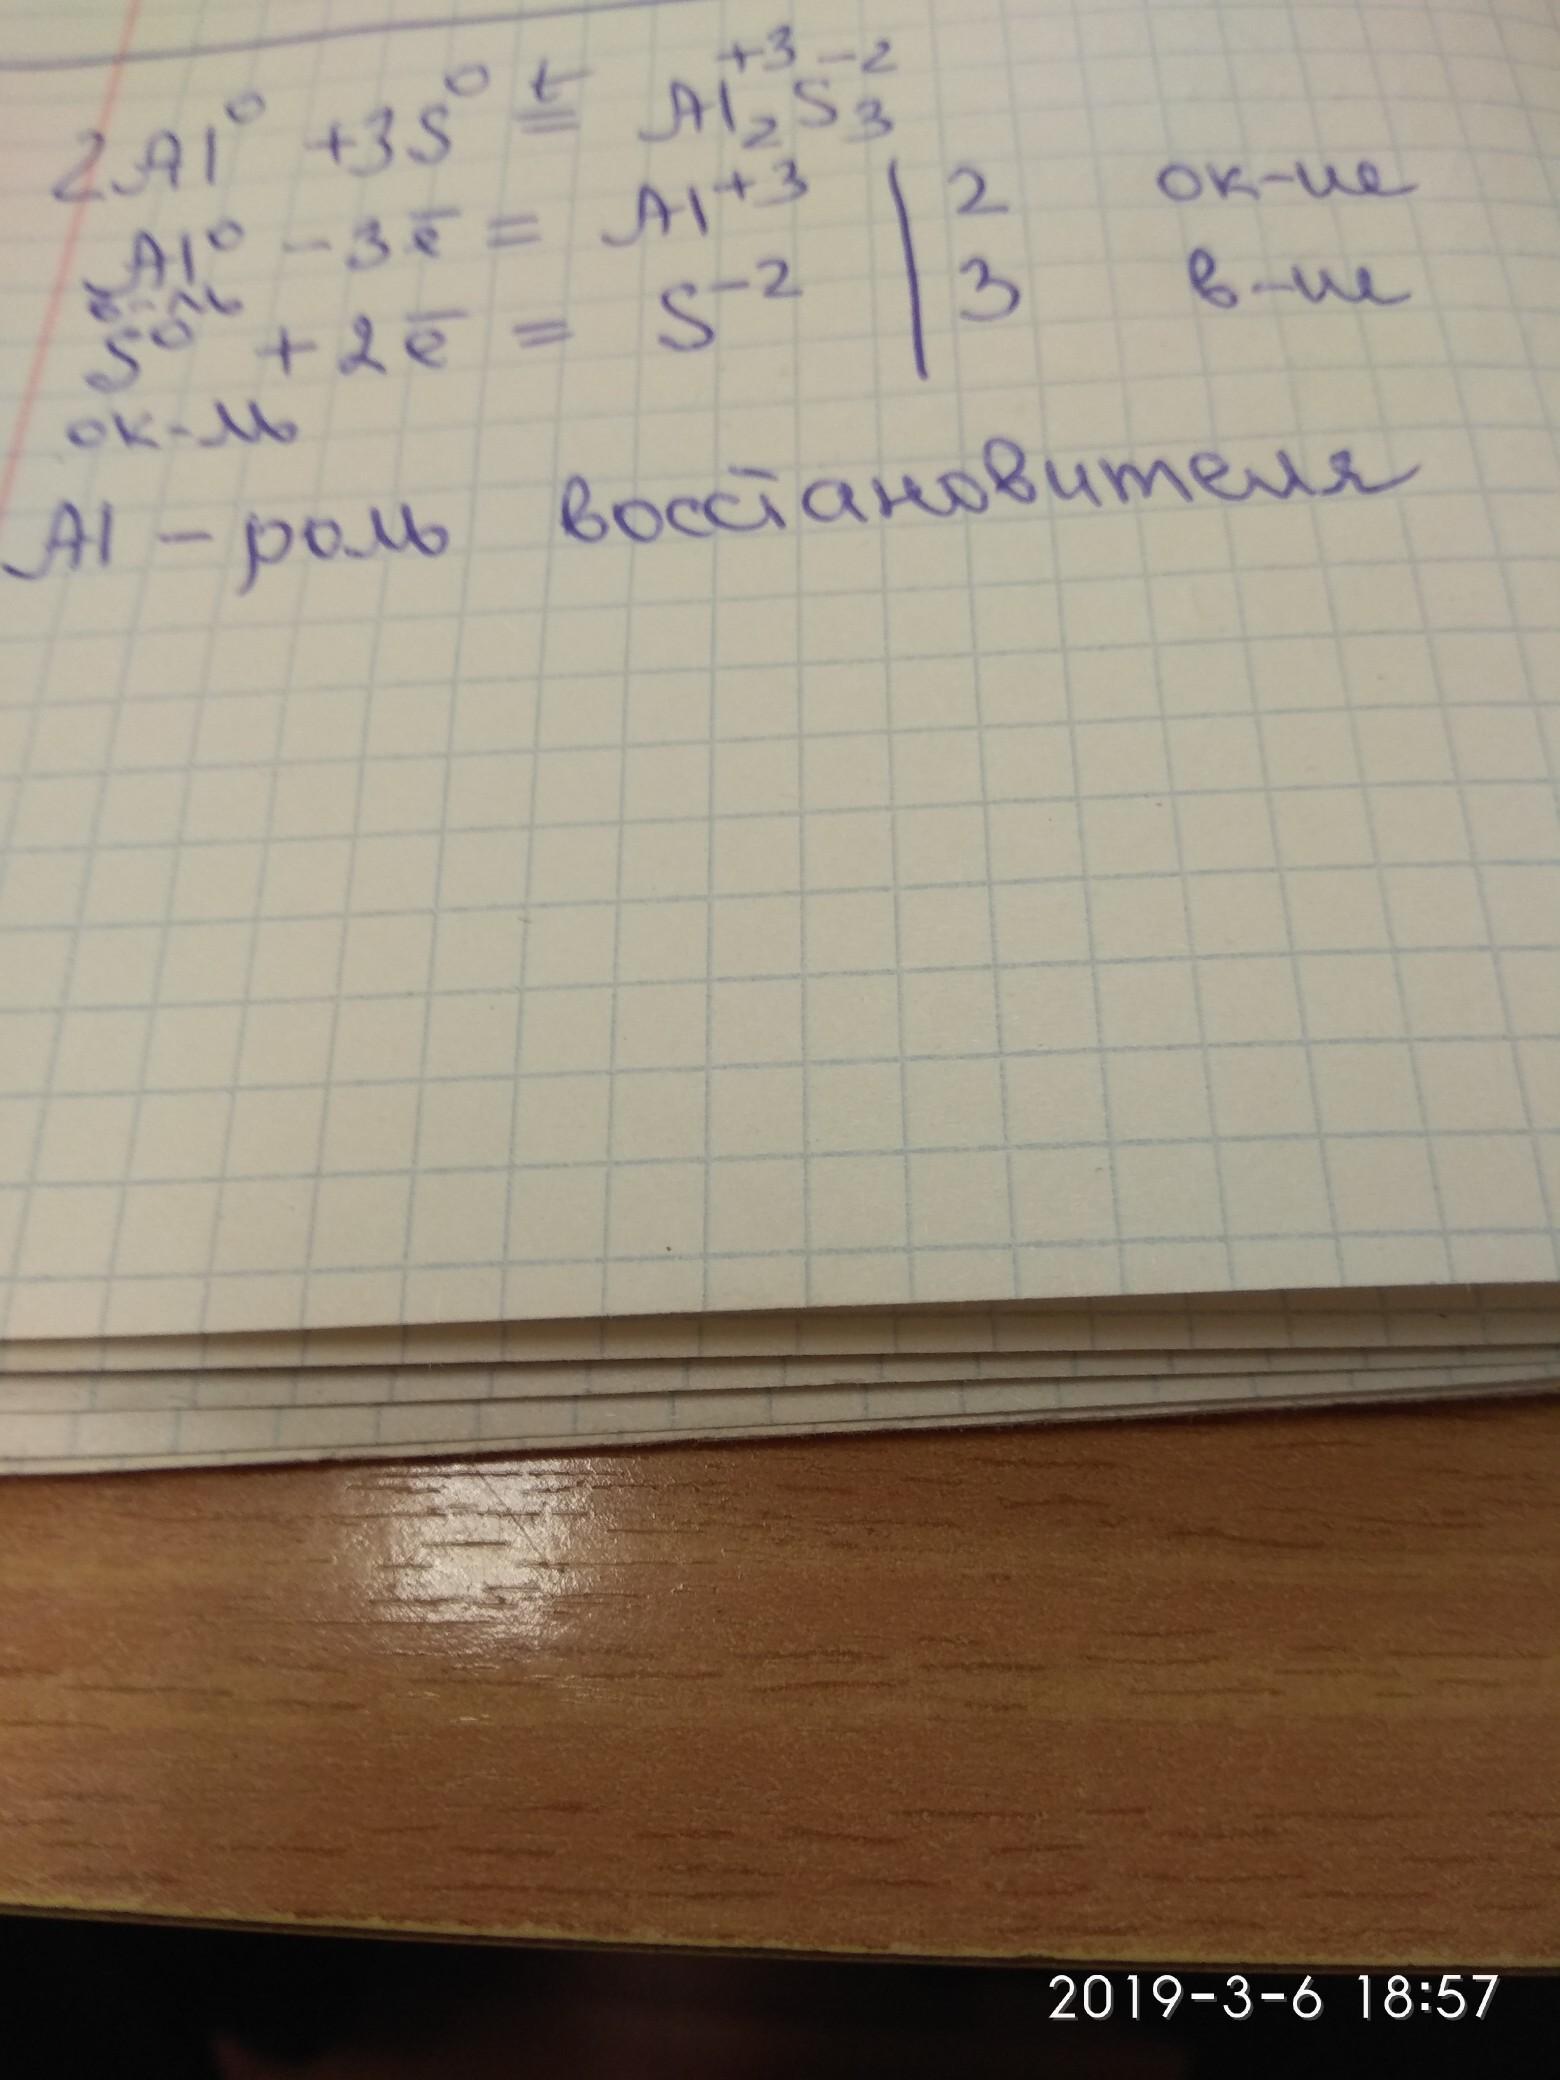 2Al⁰ + 3S⁰ t= Al₂⁺³S₃⁻²
Al⁰ - 3ē = Al⁺³ | 2 ок-ие
в-ль
S⁰ + 2ē = S⁻² | 3 в-ие
ок-ль
Al - роль восстановителя
2019-3-6 18:57